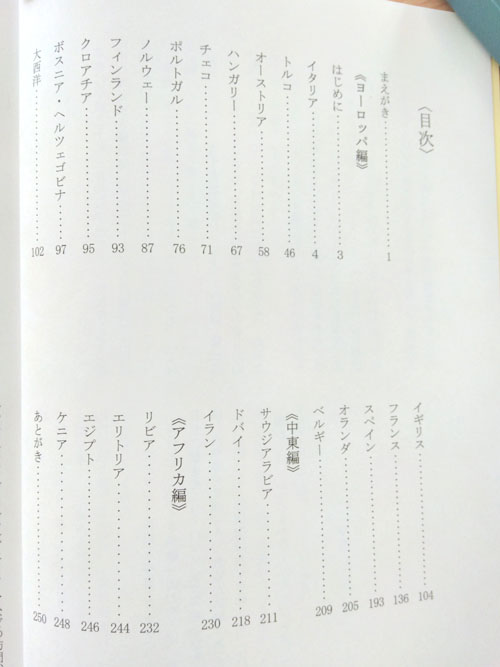 〈目次〉
まえがき・・・・・・・・・・・・・・・・1
《ヨーロッパ編》
はじめに・・・・・・・・・・・・・・・・3
イタリア・・・・・・・・・・・・・・・・4
トルコ・・・・・・・・・・・・・・・・46
オーストリア・・・・・・・・・・・・58
ハンガリー・・・・・・・・・・・・・・67
チェコ・・・・・・・・・・・・・・・・71
ポルトガル・・・・・・・・・・・・・・76
ノルウェー・・・・・・・・・・・・・・87
フィンランド・・・・・・・・・・・・93
クロアチア・・・・・・・・・・・・・・95
ボスニア・ヘルツェゴビナ・・・・97
大西洋・・・・・・・・・・・・・・・・102
イギリス・・・・・・・・・・・・・・・・104
フランス・・・・・・・・・・・・・・・・136
スペイン・・・・・・・・・・・・・・・・193
オランダ・・・・・・・・・・・・・・・・205
ベルギー・・・・・・・・・・・・・・・・209
《中東編》
サウジアラビア・・・・・・・・・・211
ドバイ・・・・・・・・・・・・・・・・218
イラン・・・・・・・・・・・・・・・・230
《アフリカ編》
リビア・・・・・・・・・・・・・・・・232
エリトリア・・・・・・・・・・・・・・244
エジプト・・・・・・・・・・・・・・・・246
ケニア・・・・・・・・・・・・・・・・248
あとがき・・・・・・・・・・・・・・・・250